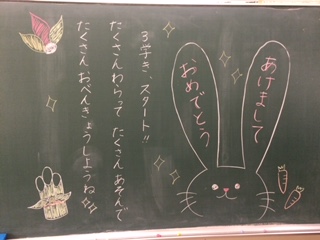 あけまして
おめでとう
3学き、スタート!!
たくさんわらって たくさんあそんで
たくさん おべんきょうしようね